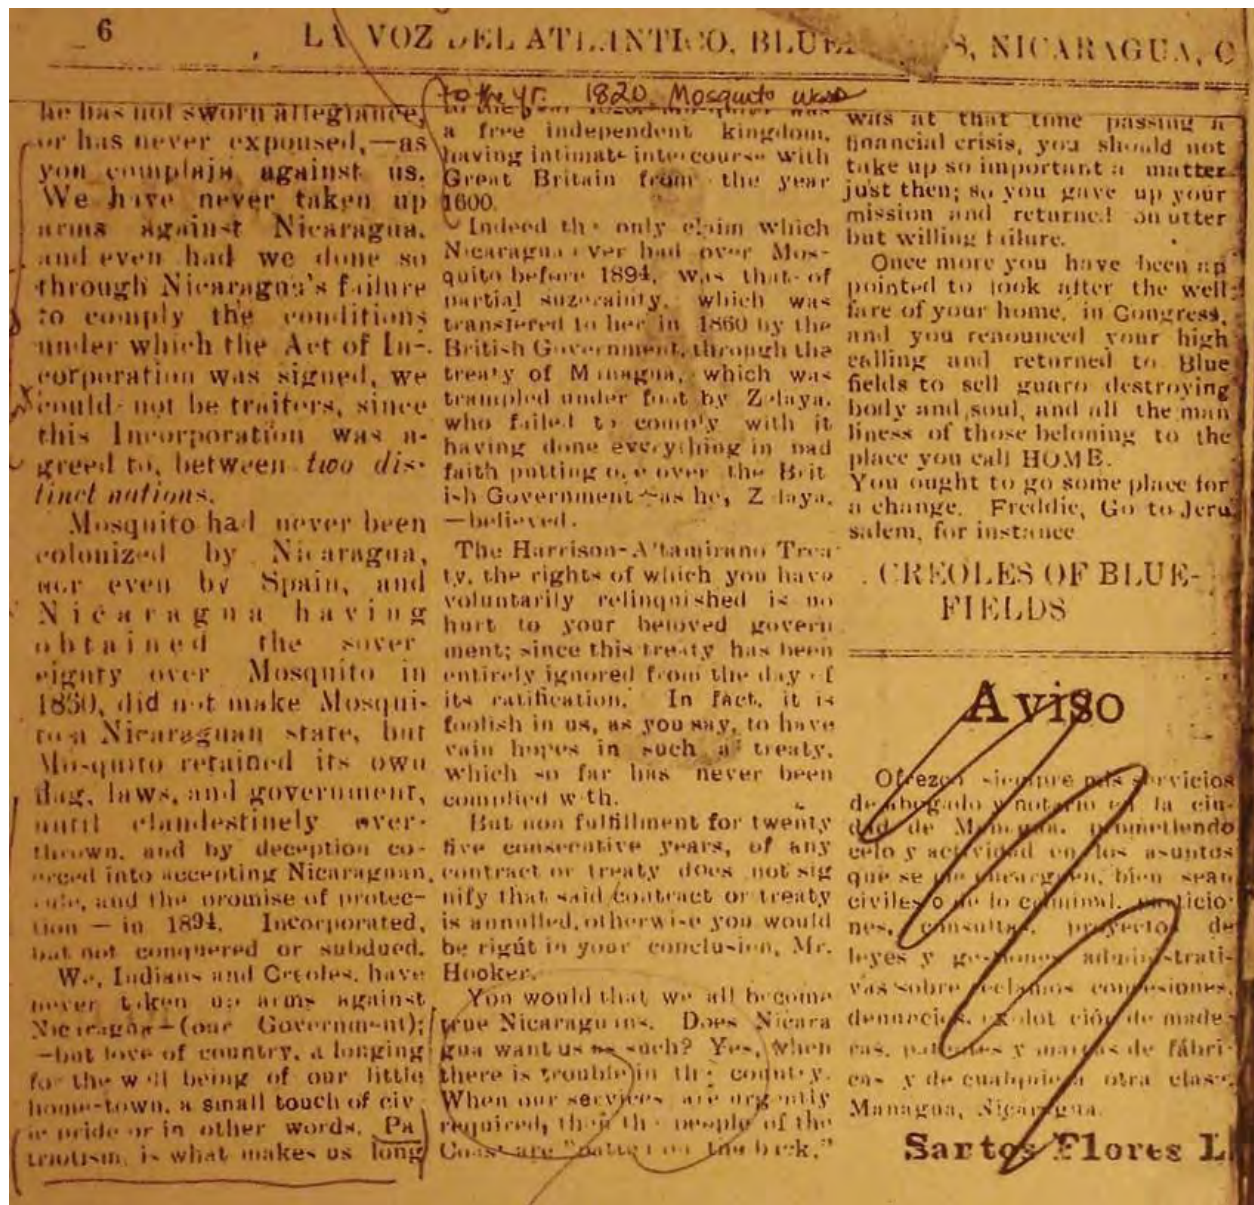 6
LA VOZ DEL ATLANTICO, BLUEFIELDS, NICARAGUA, C
he has not sworn allegiance,
or has never expoused,—as
you complain against us.
We have never taken up
arms against Nicaragua,
and even had we done so
through Nicaragua's failure
to comply the conditions
under which the Act of In-
corporation was signed, we
could not be traiters, since
this Incorporation was a-
greed to, between two dis-
tinct nations.
Mosquito had never been
colonized by Nicaragua,
nor even by Spain, and
Nicaragua having
obtained the sover
eignty over Mosquito in
1860, did not make Mosqui-
to a Nicaraguan state, but
Mosquito retained its own
flag, laws, and government,
until clandestinely over-
thrown, and by deception co-
erced into accepting Nicaraguan
rule, and the promise of protec-
tion — in 1894. Incorporated,
but not conquered or subdued.
We, Indians and Creoles, have
never taken up arms against
Nicaragua—(our Government);
—but love of country, a longing
for the well being of our little
home-town, a small touch of civ
ic pride or in other words, Pa
triotism, is what makes us long
to the yr. 1820 Mosquito was
a free independent kingdom,
having intimate intercourse with
Great Britain from the year
1600.
Indeed the only claim which
Nicaragua ever had over Mos-
quito before 1894, was that of
partial suzerainty, which was
transfered to her in 1860 by the
British Government, through the
treaty of Managua, which was
trampled under foot by Zelaya,
who failed to comply with it
having done everything in bad
faith putting one over the Brit
ish Government—as he, Zelaya,
—believed.
The Harrison-Altamirano Trea
ty, the rights of which you have
voluntarily relinquished is no
hurt to your beloved govern
ment; since this treaty has been
entirely ignored from the day of
its ratification. In fact, it is
foolish in us, as you say, to have
vain hopes in such a treaty,
which so far has never been
complied with.
But non fulfillment for twenty
five consecutive years, of any
contract or treaty does not sig
nify that said contract or treaty
is annulled, otherwise you would
be right in your conclusion, Mr.
Hooker.
You would that we all become
true Nicaraguans. Does Nicara
gua want us as such? Yes, when
there is trouble in the country.
When our services are urgently
required, then the people of the
Coast are "patted on the back,"
was at that time passing a
financial crisis, you should not
take up so important a matter
just then; so you gave up your
mission and returned an utter
but willing failure.
Once more you have been ap
pointed to look after the well
fare of your home, in Congress,
and you renounced your high
calling and returned to Blue
fields to sell guaro destroying
body and soul, and all the man
liness of those beloning to the
place you call HOME.
You ought to go some place for
a change. Freddie, Go to Jeru
salem, for instance
CREOLES OF BLUE-
FIELDS
Aviso
Ofrezco siempre mis servicios
de abogado y notario en la ciu-
dad de Managua, prometiendo
celo y actividad en los asuntos
que se me encarguen, bien sean
civiles o de lo criminal, particio-
nes, consultas, proyectos de
leyes y gestiones administrati-
vas sobre reclamos concesiones,
denuncios, explotación de made-
ras, patentes y marcas de fábri-
cas y de cualquiera otra clase.
Managua, Nicaragua.
Santos Flores L